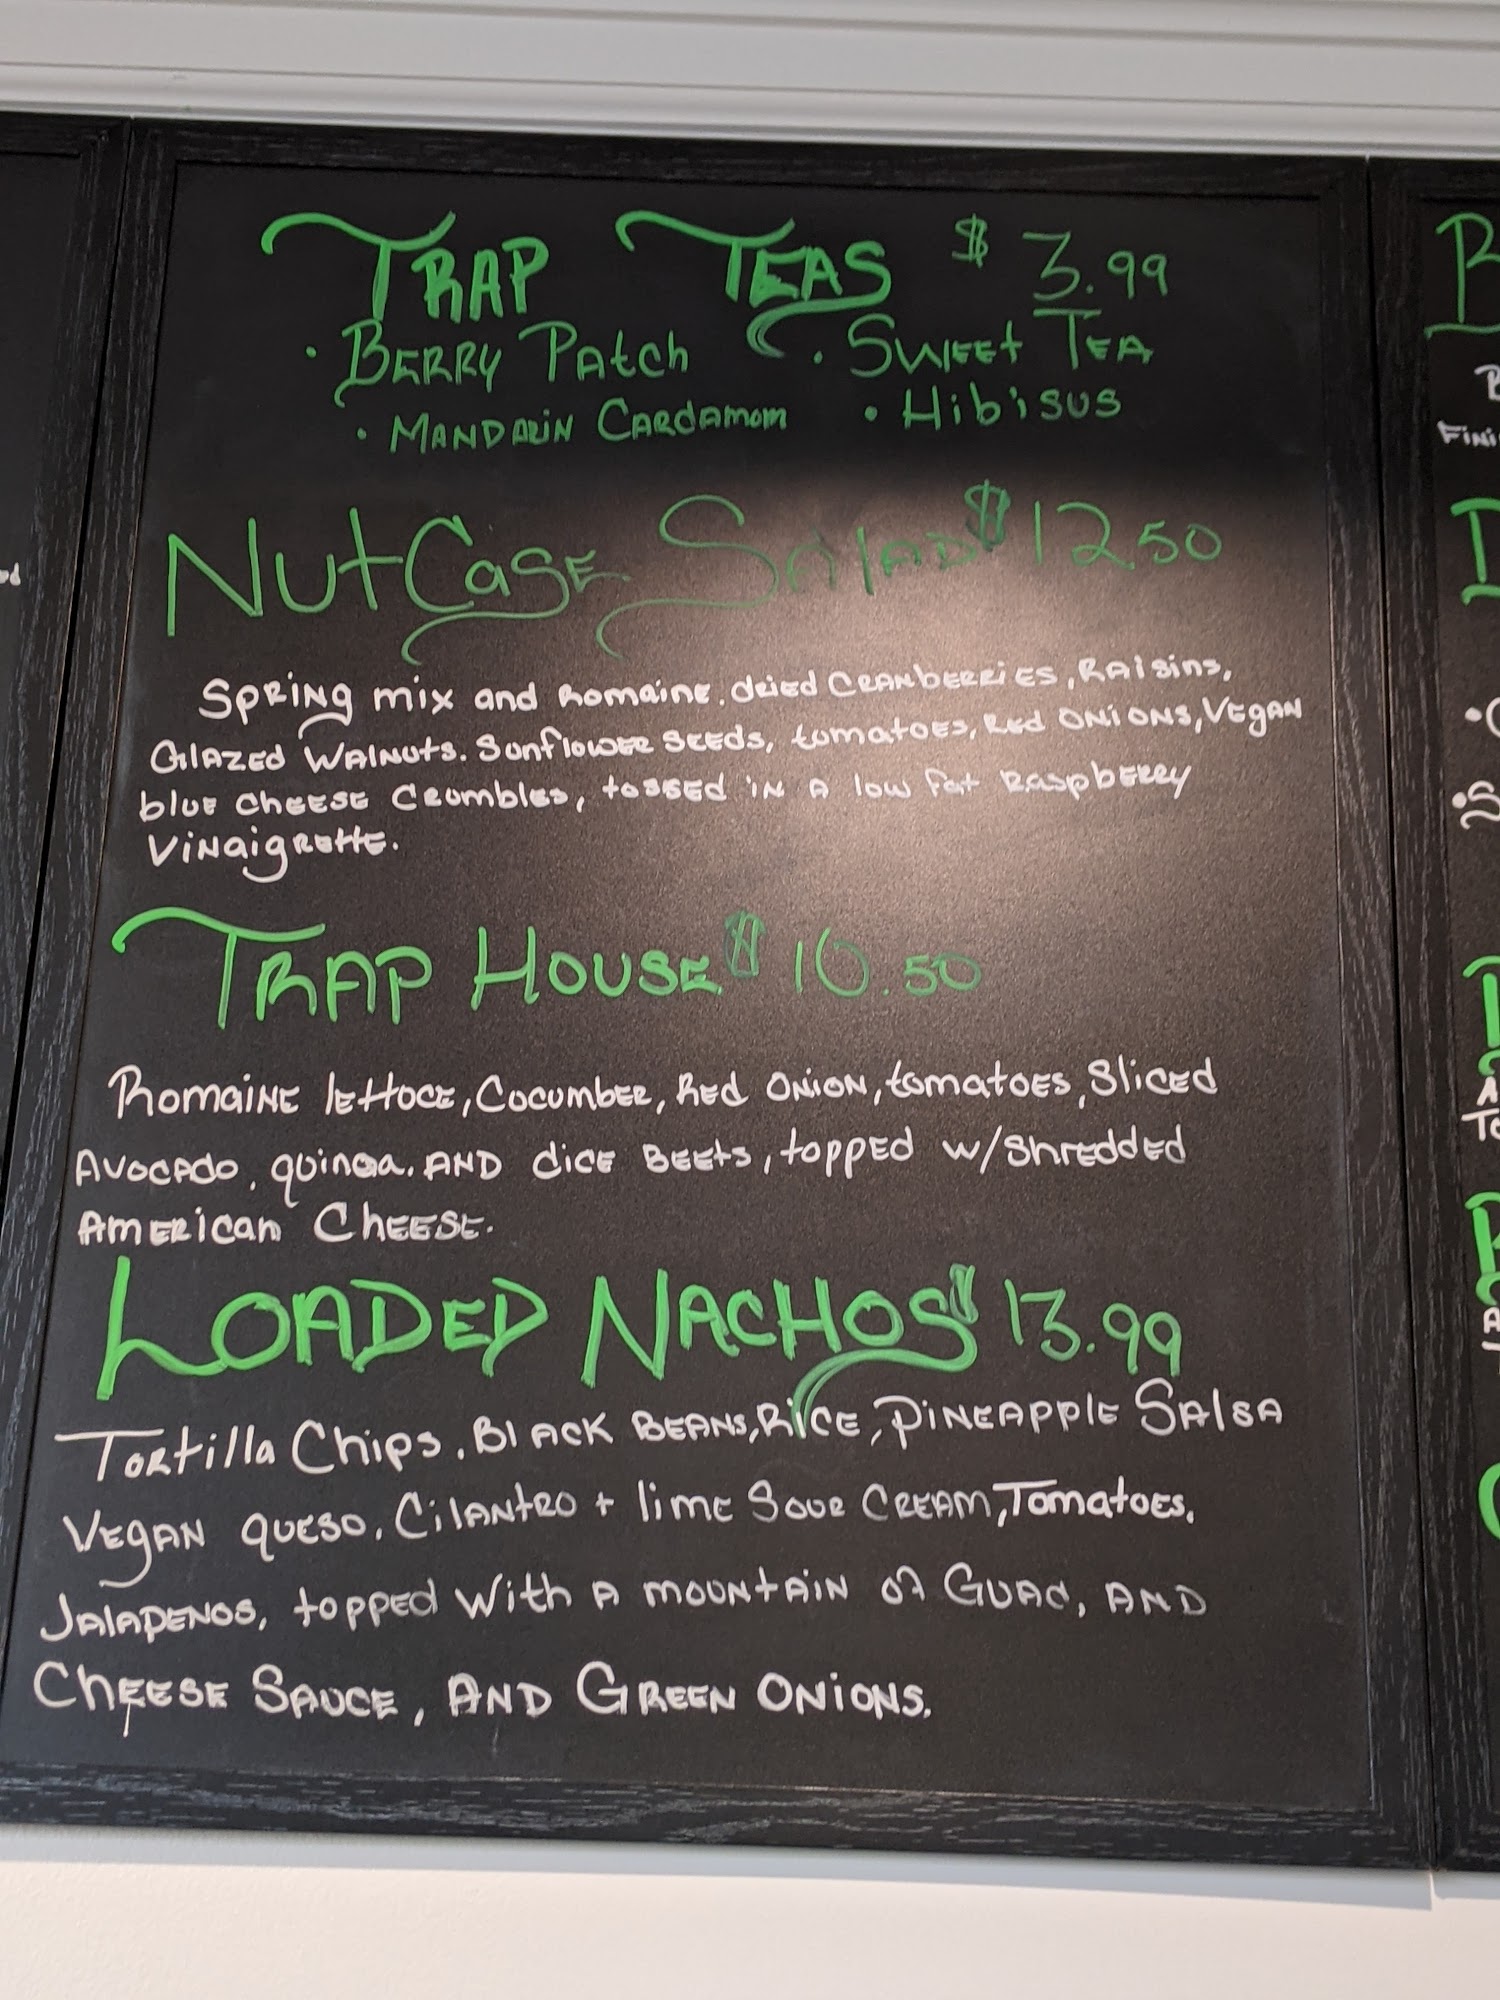 TRAP TEAS $ 3.99
• BERRY PAtch • SWEET TEA
• MANDARIN CARDAMOM • Hibisus
NutCASE SALAD $ 12 50
SPRING mix and Romaine. dried CRANbERRIES, RAISINS,
GlAZED WALNUtS. SunflOWER SEEDS, tomatoES, RED ONIONS, VEGAN
bluE CHEESE CRumblES, tOSSED IN A low fat RASpbERRY
ViNaigREttE.
TRAP HOUSE $ 10.50
RomaiNE lEttocE, COCumbER, RED ONION, tomatoES, SlicED
AVOCADO. quinoa. AND dicE BEEtS, topped w/ShREddEd
AmERican ChEESE.
LOADED NACHOS $ 13.99
TORtilla Chips. Bl ACK BEANS, RICE, PINEAPPlE SAlSA
VEGAN QUESO. CilANtRO + limE SOUR CREAM, TomatoES.
JAlAPENOS, toppED With A mountAiN of GUAC, AND
ChEESE SAUCE, AND GREEN ONiONS.